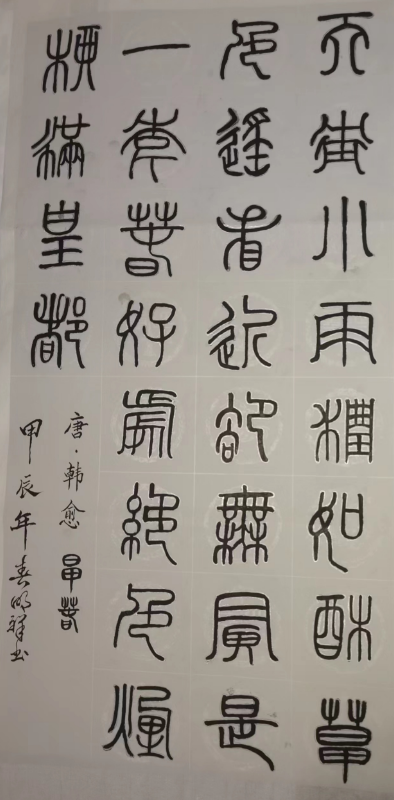 天街小雨如酥草
色遙看近卻無最是
一年春好處絕色煙
滿皇都
唐·韩愈 早春
甲辰年春明祥书